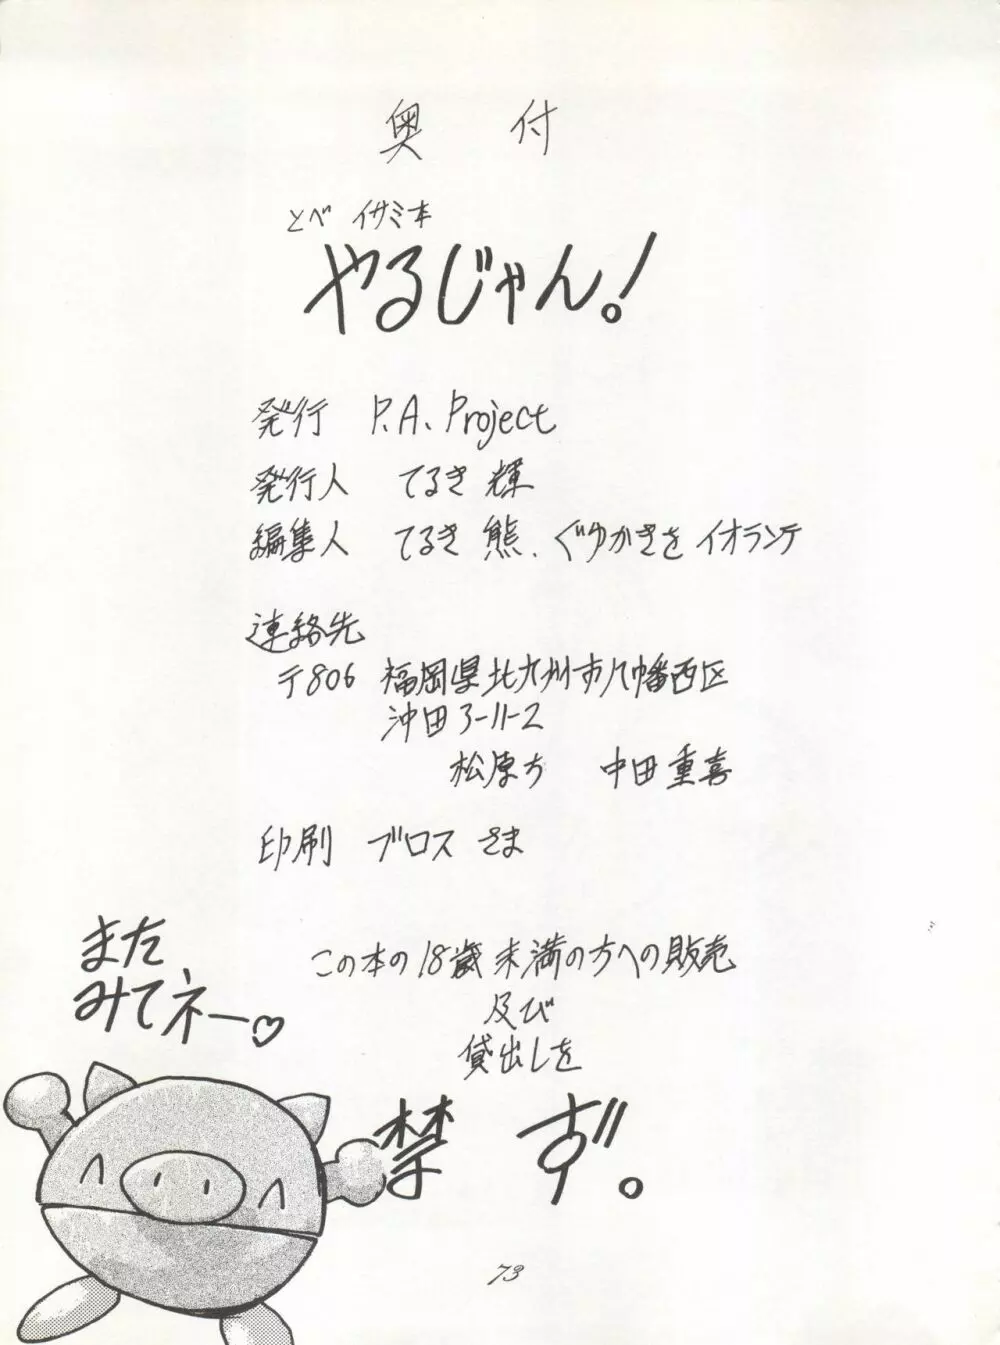 奥付
とべ イサミ本
やるじゃん!
発行 P.A.Project
発行人 てるき 輝
編集人 てるき 熊、ぐゆかきを イオランテ
連絡先
〒806 福岡県北九州市八幡西区
沖田3-11-2
松原方 中田重喜
印刷 ブロス さま
この本の18歳未満の方への販売
及び
貸出しを
禁ず。
また
みてネー♡
73